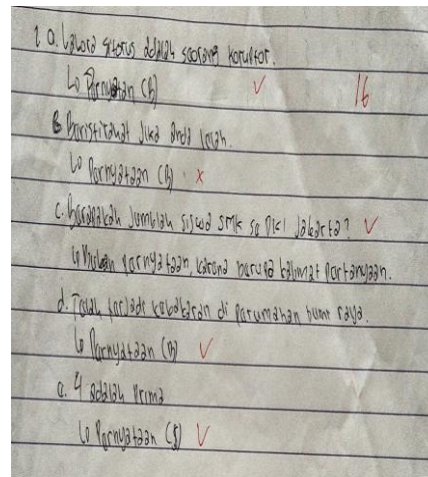 1 a. Lawora sitorus adalah seorang koruptor.
↳ Pernyataan (B) ✓ 16
B Beristirahat jika anda lelah.
↳ Pernyataan (B) x
c. Berapakah Jumlah siswa SMK se DKI Jakarta? ✓
↳ Bukan pernyataan, karena berupa kalimat pertanyaan.
d. Telah terjadi kebakaran di perumahan bumi raya.
↳ Pernyataan (B) ✓
e. 4 adalah Prima
↳ Pernyataan (S) ✓